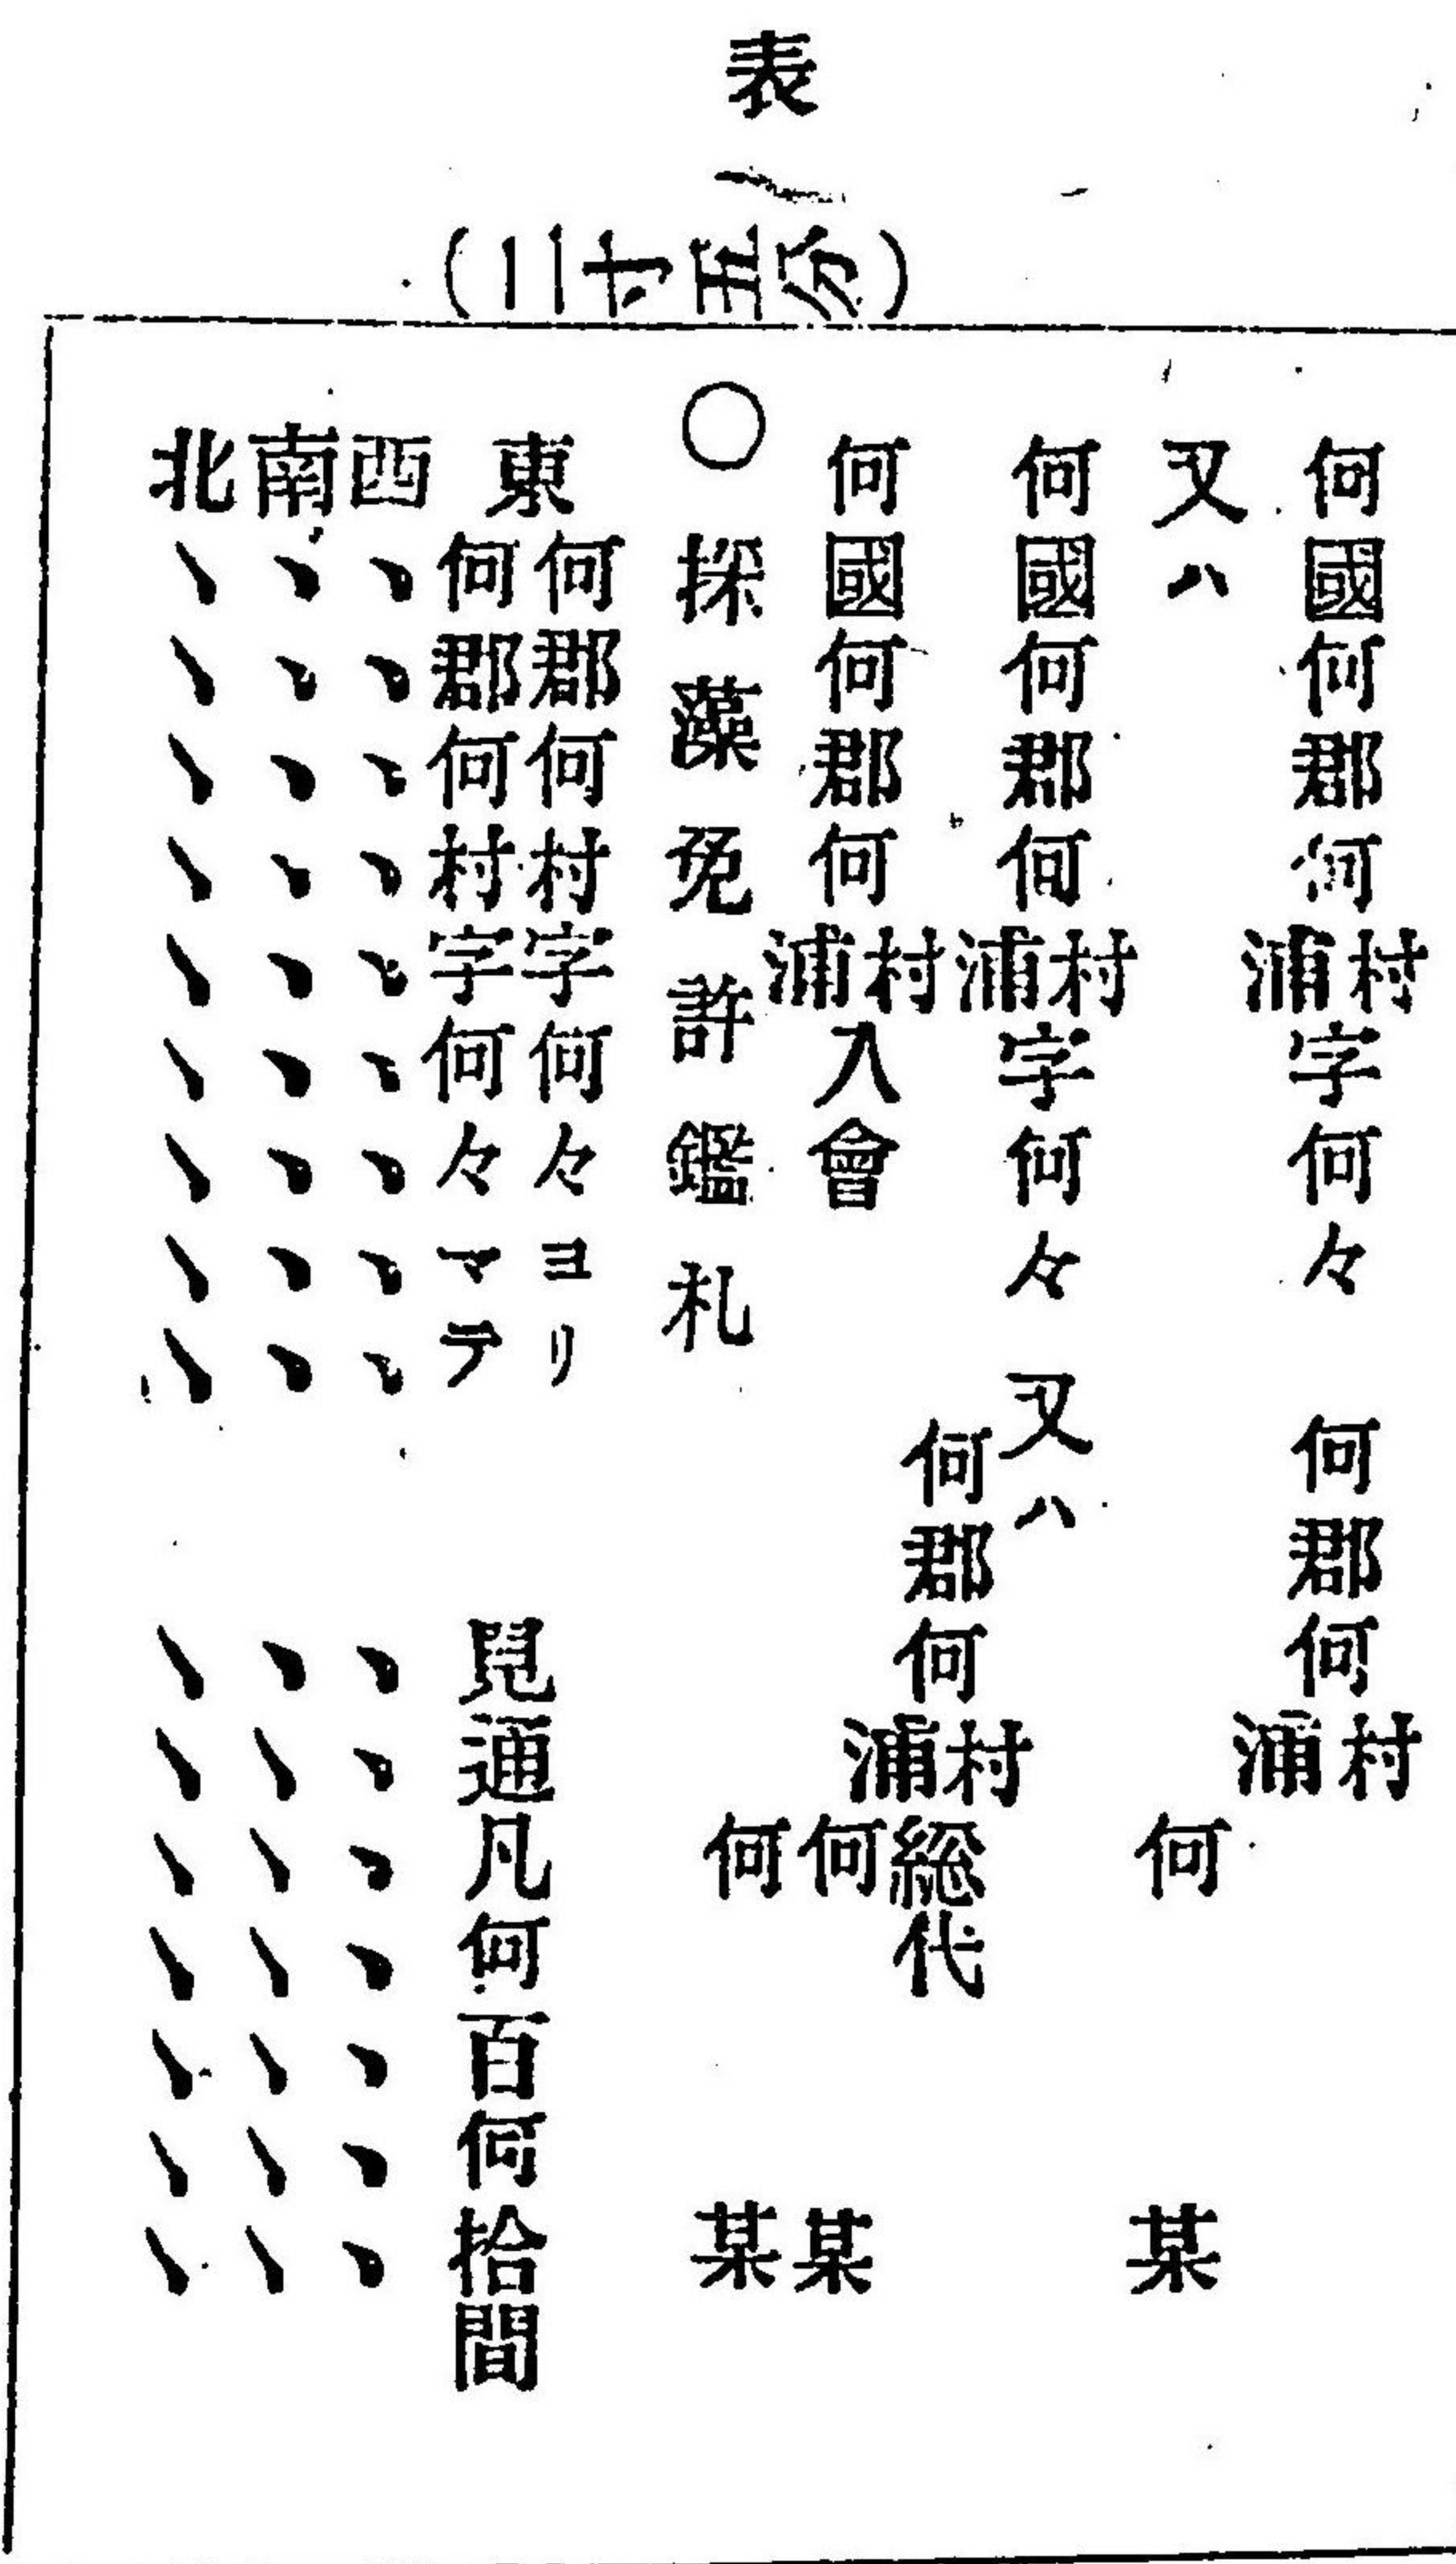 表
(二寸五分)
何國何郡何村浦字何々　何郡何村浦
何　某
又ハ
何國何郡何村浦字何々　又ハ
何郡何村浦総代
何國何郡何村浦入會
何　某
何　某
○採藻免許鑑札
東　何郡何村字何々ヨリ
何郡何村字何々マテ　見通凡何百何拾間
西、、、、、、、、、　、、、、、、、
南、、、、、、、、、　、、、、、、、
北、、、、、、、、、　、、、、、、、